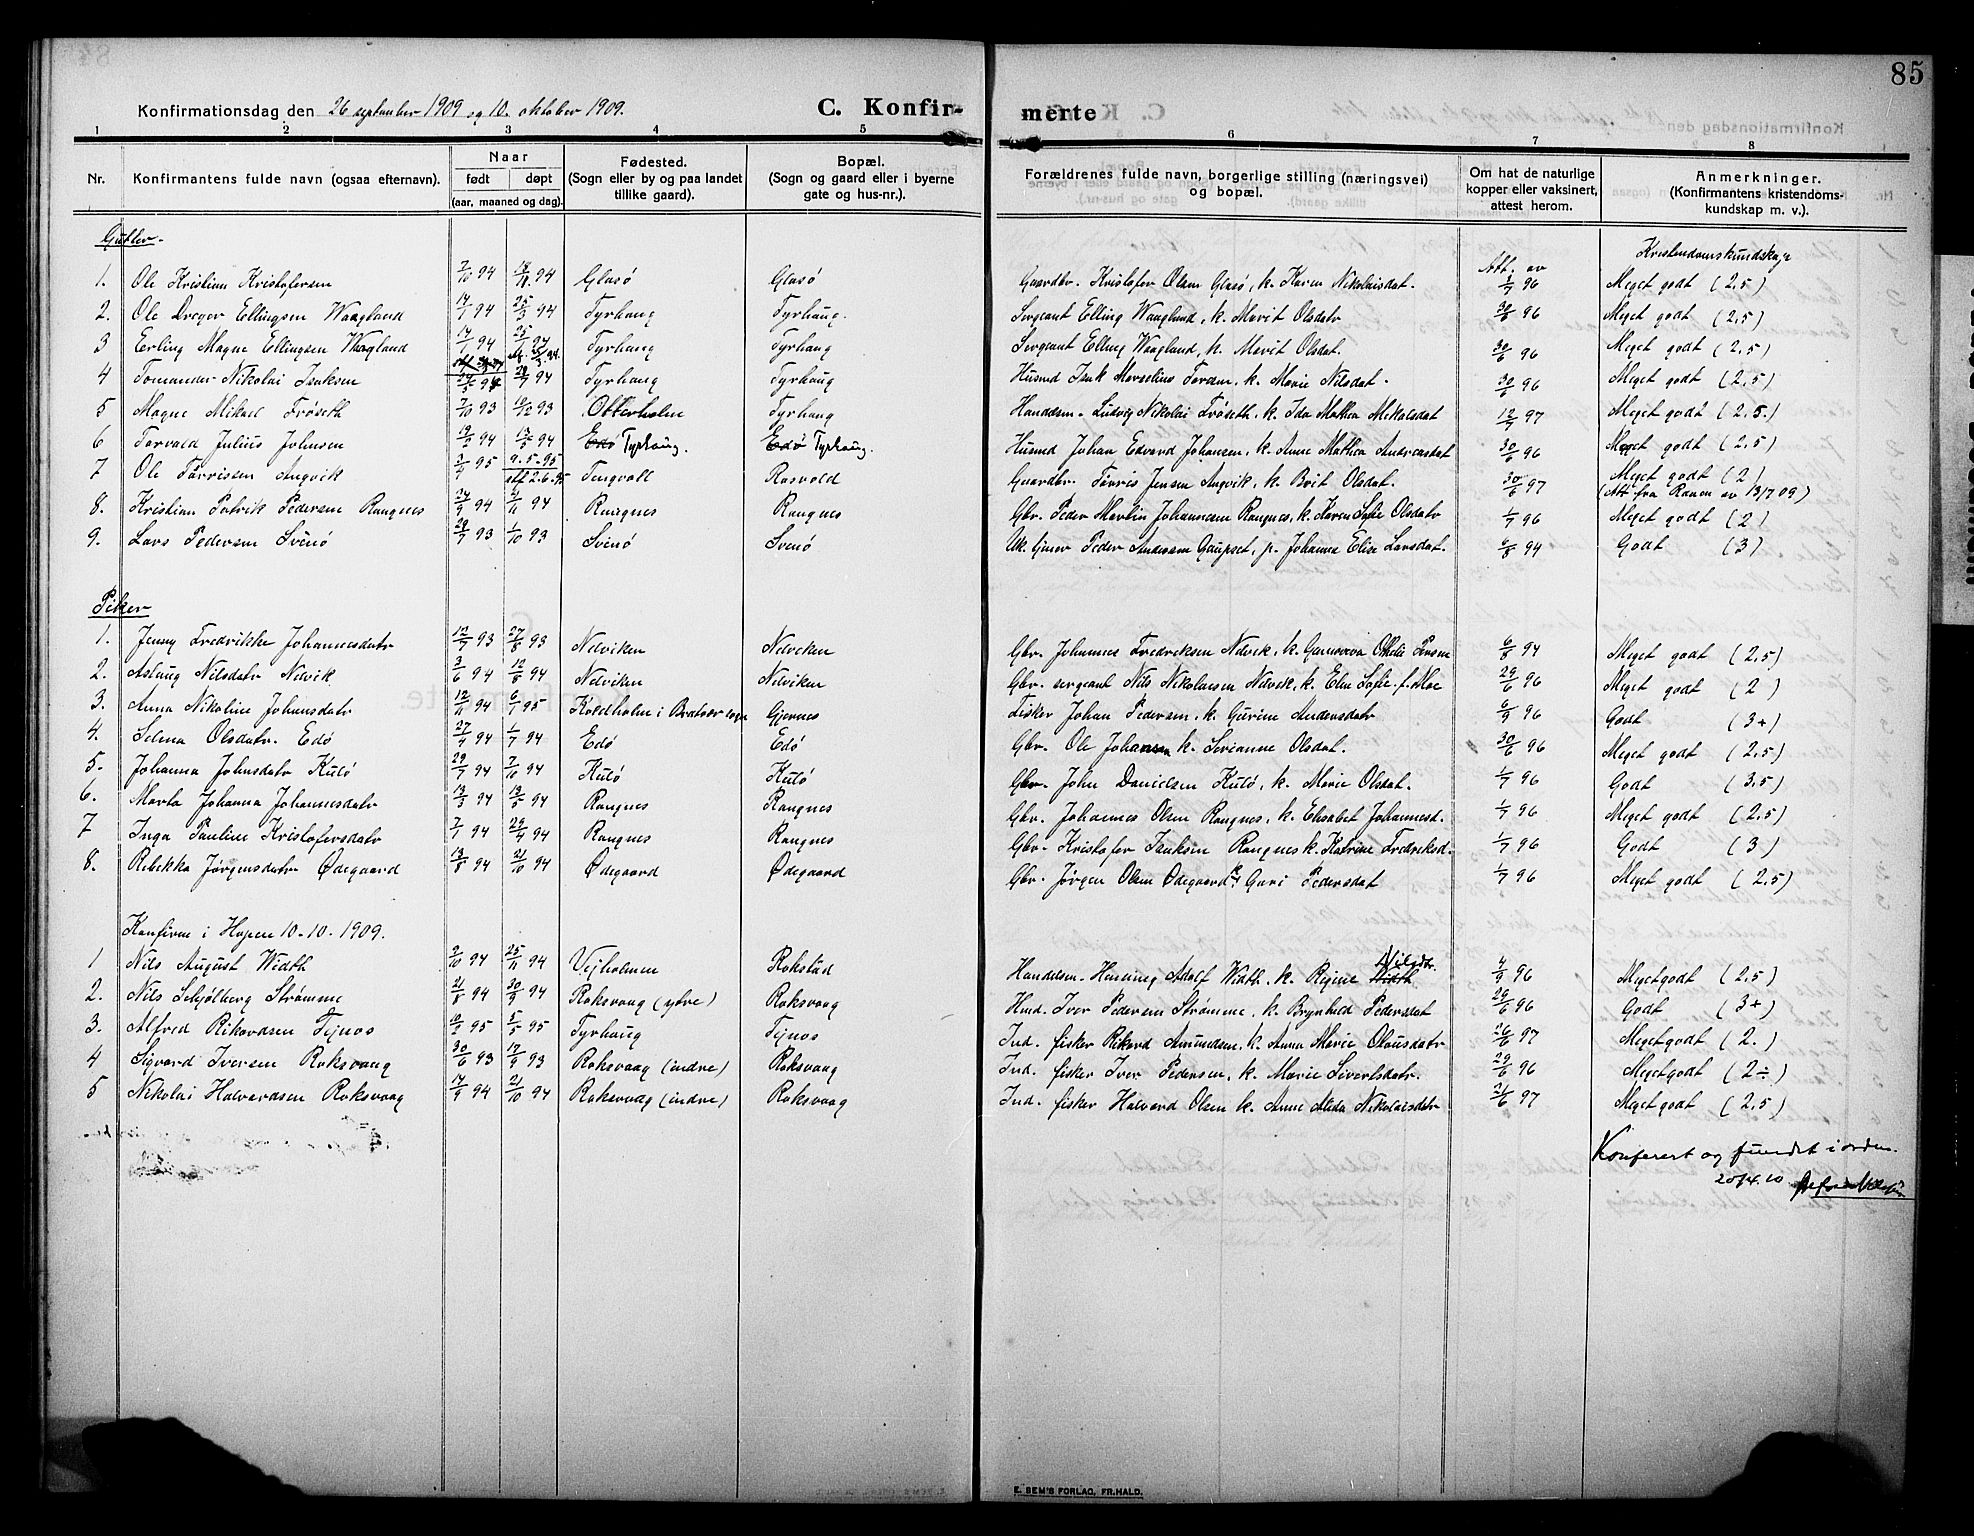 85
Konfirmationsdag den 26 september 1909 og 10. oktober 1909. C. Konfir- merte
1 2 3 4 5 6 7 8
Nr. Konfirmantens fulde navn (ogsaa efternavn). Naar født døpt (aar, maaned og dag). Fødested. (Sogn eller by og paa landet tillike gaard). Bopæl. (Sogn og gaard eller i byerne gate og hus-nr.). Forældrenes fulde navn, borgerlige stilling (næringsvei) og bopæl. Om hat de naturlige kopper eller vaksinert, attest herom. Anmerkninger. (Konfirmantens kristendoms- kundskap m. v.).
Gutter. Kristendomskundskap
1. Ole Kristian Kristofersen 7/10 94 94 Glasø Glasø Gaardbr. Kristofer Olsen Glasø, k. Karen Nikolaisdat. Att. av 1/7 96 Meget godt (2,5)
2. Ole Dreyer Ellingsen Waagland 14/1 94 25/3 94 Tyrhaug Tyrhaug. Sergeant Elling Waaglund, k. Marit Olsdatr 30/6 96 Meget godt (2,5)
3 Erling Magne Ellingsen Waagland 14/1 94 25/3 94 Tyrhaug Tyrhaug Sergeant Elling Waagland, k. Marit Olsdat. 30/6 96 Meget godt (2,5)
4 Tomander Nikolai Isaksen 24/5 94 94 Tyrhaug Tyrhaug Husmd Isak Marselius Tordsen, k. Marie Nilsdat. 30/6 96 Meget godt (2,5)
5 Magne Mikael Frøseth 7/10 93 10/12 93 Otterholm Tyrhaug Handelsm. Ludvig Nikolai Frøseth, k. Ida Mathea Mikalsdat 97 Meget godt (2,5.)
6 Torvald Julius Johnsen 94 13/5 94 Edø Tyrhaug. Edø Tyrhaug. Husmd Johan Edvard Johansen, k. Anne Mathea Andreasdat 30/6 96 Meget godt (2,5)
7 Ole Torrisen Angvik 95 9.5.95 stf 2.6.95 Tingvoll Rosvold Gaardbr. Torris Jensen Angvik, k. Brit Olsdat. 30/6 97 Meget godt (2) (Att fra Ranem av 13/7 09)
8. Kristian Patrik Pedersen Rangnes 24/9 94 94 Rangnes Rangnes Gbr. Peder Martin Johannesen Rangnes, k. Karen Sofie Olsdatr 1/7 96 Meget godt (2)
9. Lars Pedersen Svinø 93 1/10 93 Svinø Svinø Uk. Peder Andersen Gaupset, p. Johanna Elise Larsdat. 6/8 94 Godt (3)
Piker
1. Jenny Fredrikke Johannesdatr 93 27/8 93 Nelviken Nelviken Gbr. Johannes Fredriksen Nelvik, k. Othelie Jensen 6/8 94 Meget godt (2,5)
2. Aslaug Nilsdatr Nelvik 3/6 94 12/8 94 Nelviken Nelviken Gbr. sergeant Nils Nikolaisen Nelvik, k. Elen Sofie f. Moe 29/6 96 Meget godt (2)
3. Anna Nikoline Johansdatr 12/11 94 6/1 95 Koldholm i Bratvær sogn Gjernes Fisker Johan Pedersen, k. Gurine Andersdatr 6/9 96 Godt (3+)
4. Selma Olsdatr. Edø 27/4 94 1/7 94 Edø Edø Gbr. Ole Johansen k. Serianne Olsdat. 30/6 96 Meget godt (2,5)
5. Johanna Johnsdatr Kulø 29/7 94 7/10 94 Kulø Kulø Gbr. John Danielsen Kulø, k. Marie Olsdat. 1/7 96 Godt (3,5)
6. Marta Johanna Johannesdatr 13/3 94 13/5 94 Rangnes Rangnes Gbr. Johannes Olsen Rangnes, k. Elisabet Johannesd. 1/7 96 Meget godt (2,5)
7 Inga Pauline Kristofersdatr 7/1 94 29/4 94 Rangnes Rangnes Gbr. Kristofer Isaksen Rangnes k. Katrine Fredriksd. 1/7 96 Godt (3)
8. Rebekka Jørgensdatr Ødegaard 13/8 94 21/10 94 Ødegaard Ødegaard Gbr. Jørgen Olsen Ødegaard k. Guri Pedersdat 1/7 96 Meget godt (2,5)
Konfirm i Hopen 10-10-1909.
1 Nils August Width 2/10 94 25/11 94 Vejholmen Rokstad Handelsm. Henning Adolf Width. k. Regine Width Nilsdtr. 4/9 96 Megetgodt (2,5)
2. Nils Schjølberg Strømme 21/8 94 30/9 94 Roksvaag (ytre) Roksvaag Husd. Iver Pedersen Strømme, k. Brynhild Pedersdat 29/6 96 Godt (3+)
3. Alfred Rikardsen Tejnos 95 5/5 95 Tyrhaug Tejnos Ind. fisker Rikard Amundsen. k. Anna Marie Olausdatr 26/6 97 Megetgodt (2.)
4 Sigvard Iversen Roksvaag 30/6 93 17/9 93 Roksvaag (indre) Roksvaag Ind. fisker Iver Pedersen, k. Marie Sivertsdatr. 29/6 96 Megetgodt (2÷)
5 Nikolai Halvardsen Roksvaag 14/9 94 21/10 94 Roksvaag (indre) Roksvaag Ind. fisker Halvard Olsen k. Anne Alida Nikolaisdatr 97 Megetgodt (2,5)
Konferert og fundet i orden.
20/4.10
E. SEM'S FORLAG, FR.HALD.